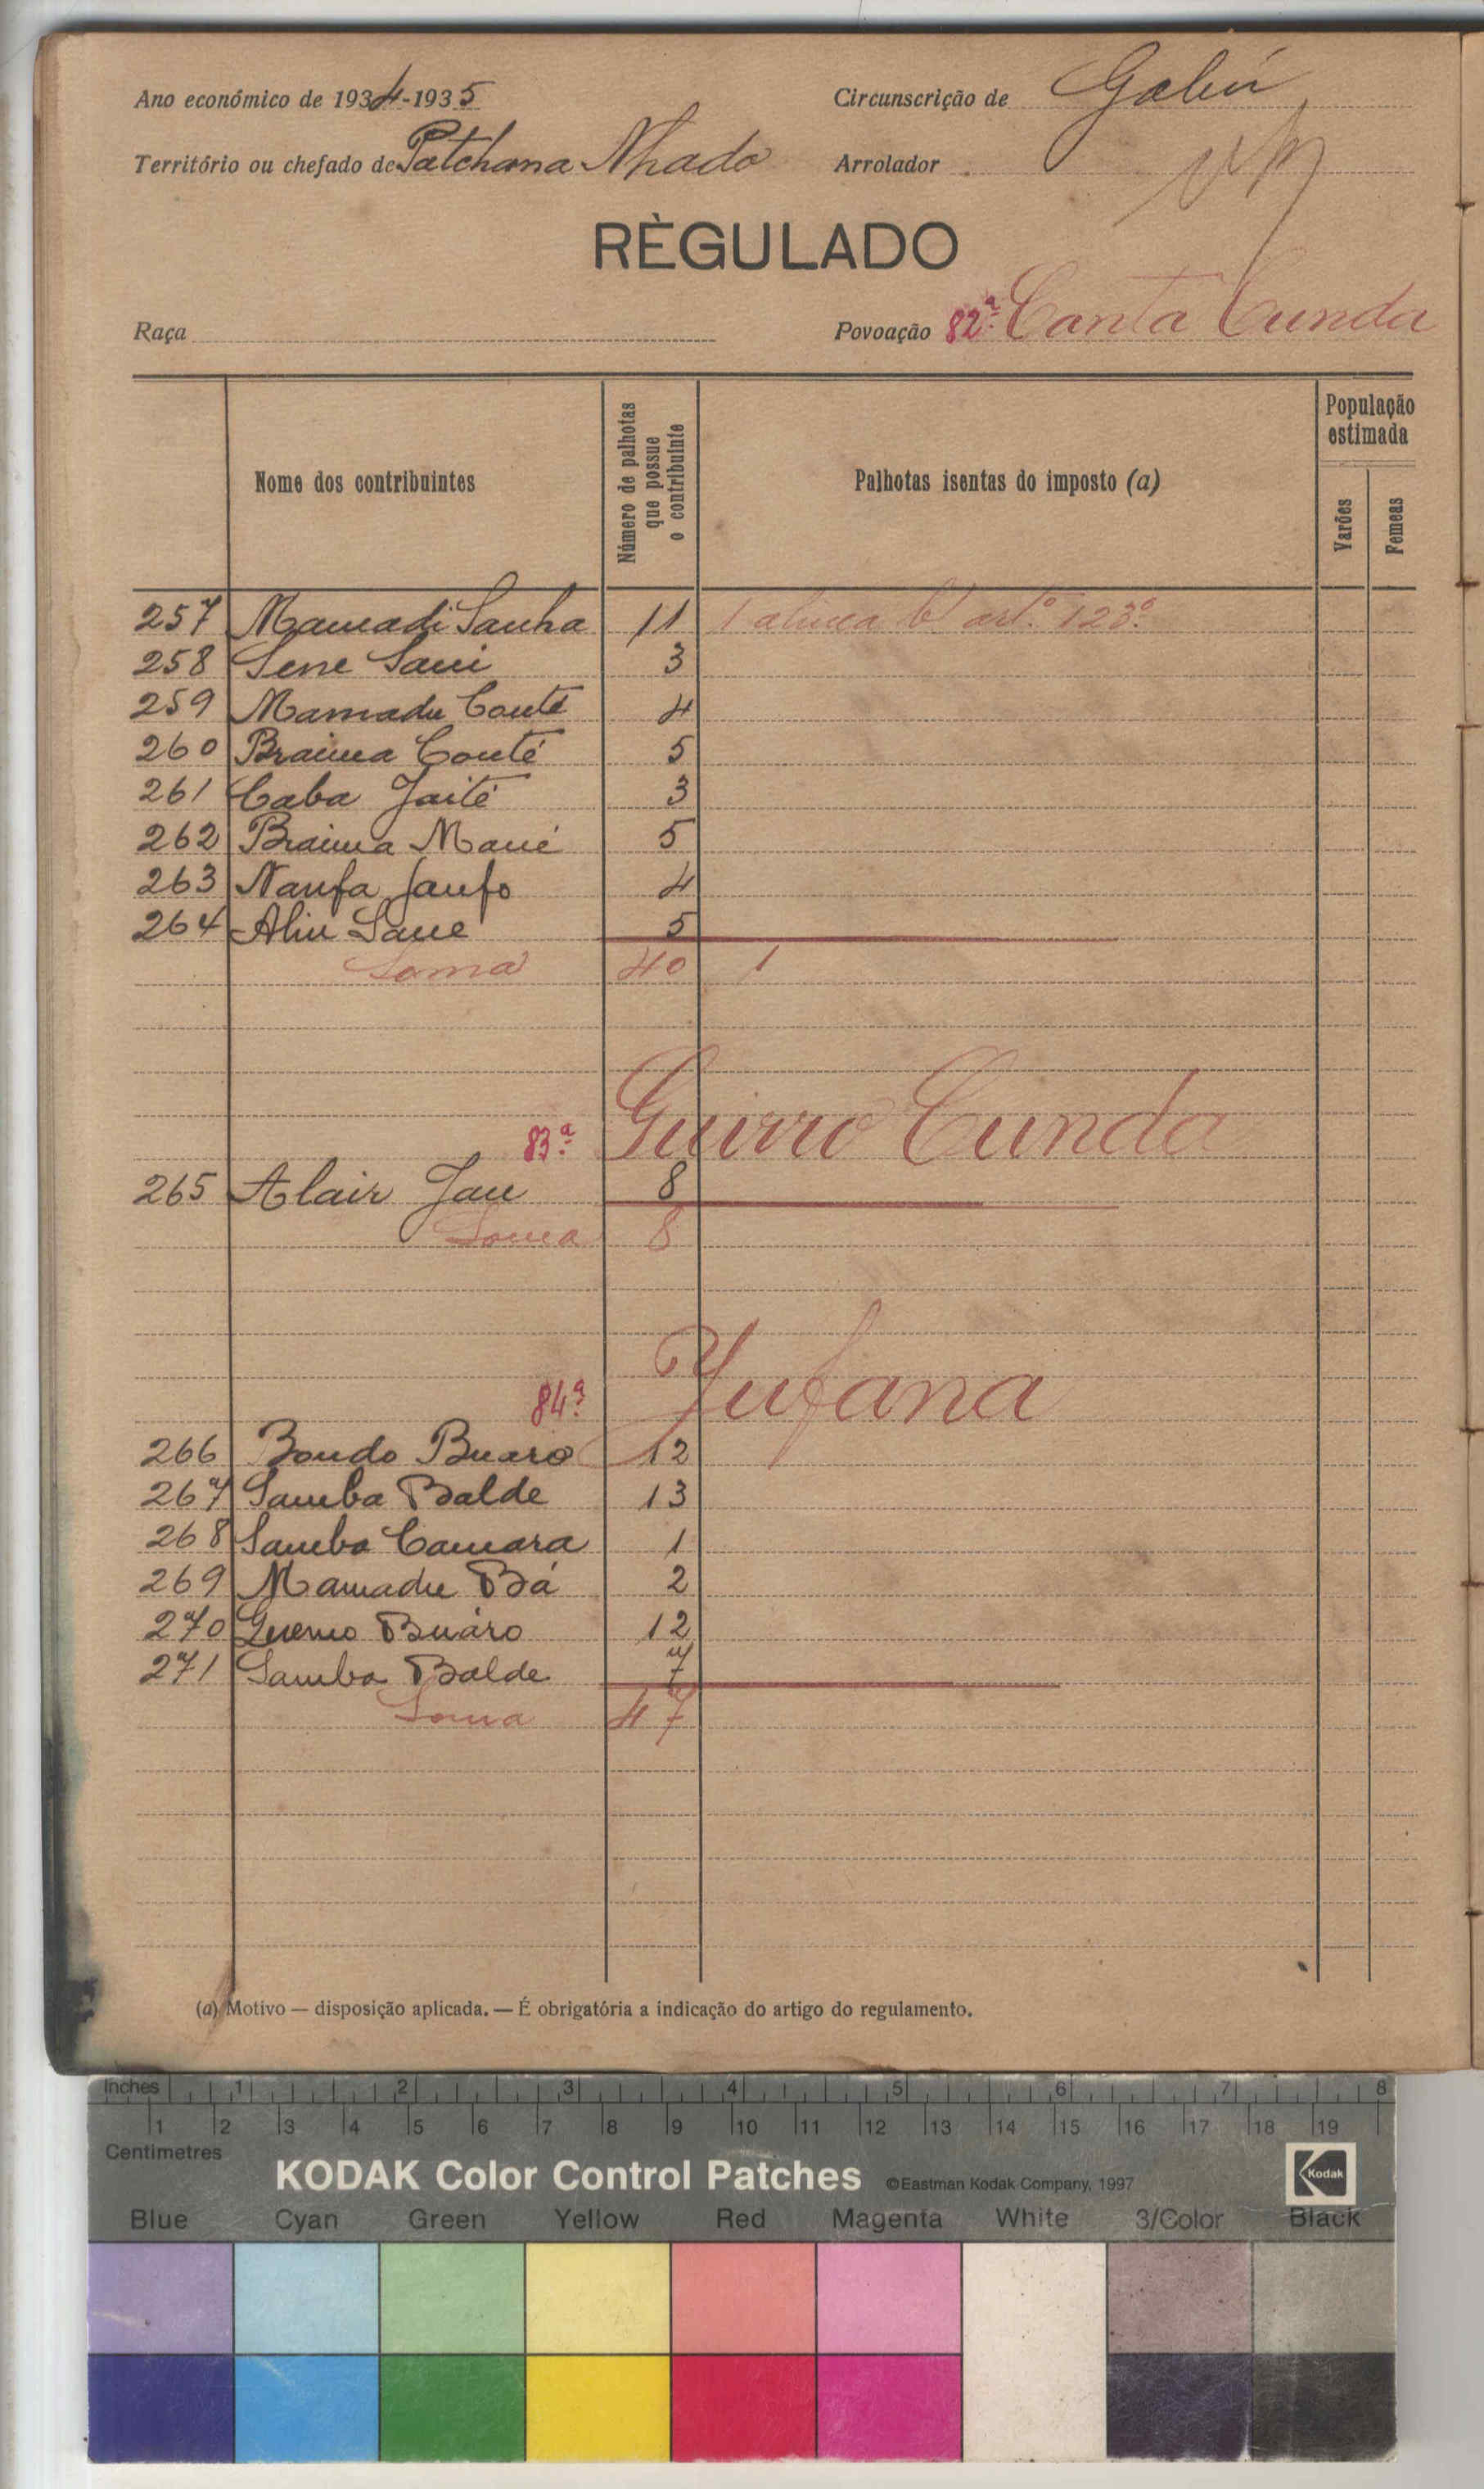 Ano económico de 1934-1935 Circunscrição de Gabú
Território ou chefado de Patchana Nhado Arrolador
RÈGULADO
Raça Povoação 82ª Canta Cunda
Nome dos contribuintes Número de palhotas que possue o contribuinte Palhotas isentas do imposto (a) População estimada Varões Femeas
257 Mamadi Sanha 11 1 alinea b) artº 123º
258 Sene Sani 3
259 Mamadu Conté 4
260 Braima Conté 5
261 Caba Jaité 3
262 Braima Mané 5
263 Nanfa Janfo 4
264 Aliu Sane 5
Soma 40 1
83ª Guirro Cunda
265 Alair Jau 8
Soma 8
84ª Jufana
266 Bondo Buaro 12
267 Samba Balde 13
268 Samba Camara 1
269 Mamadu Bá 2
270 Buáro 12
271 Samba Balde 7
Soma 47
(a) Motivo — disposição aplicada. — É obrigatória a indicação do artigo do regulamento.
Inches 1 2 3 4 5 6 7 8
1 2 3 4 5 6 7 8 9 10 11 12 13 14 15 16 17 18 19
Centimetres
KODAK Color Control Patches ©Eastman Kodak Company, 1997 Kodak
Blue Cyan Green Yellow Red Magenta White 3/Color Black